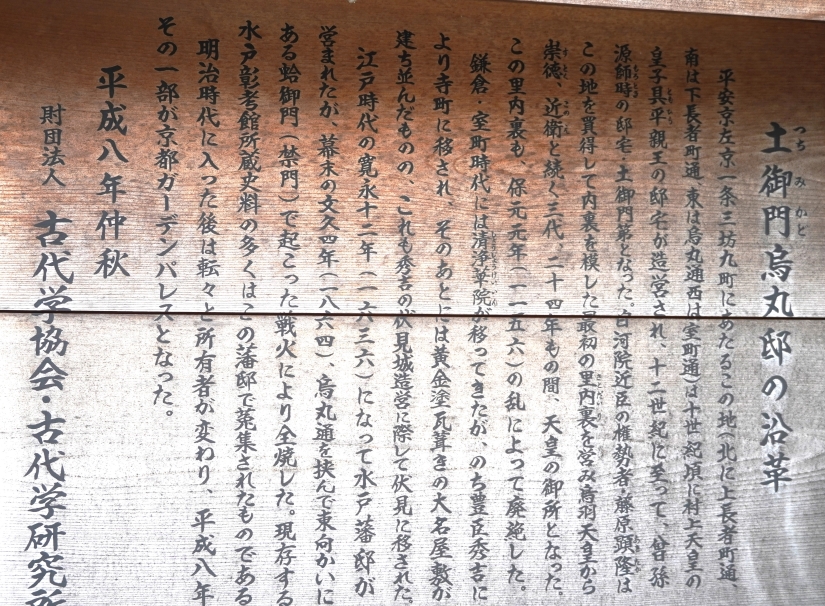 土御門烏丸邸の沿革
平安京左京一条三坊九町にあたるこの地(北に上長者町通、
南は下長者町通、東は烏丸通西は室町通)は十世紀頃に村上天皇の
皇子具平親王の邸宅が造営され、十二世紀に至って、曾孫
源師時の邸宅・土御門第となった。白河院近臣の権勢者・藤原顕隆は
この地を買得して内裏を模した最初の里内裏を営み鳥羽天皇から
崇徳、近衛と続く三代、二十四年もの間、天皇の御所となった。
この里内裏も、保元元年(一一五六)の乱によって廃絶した。
鎌倉・室町時代には清浄華院が移ってきたが、のち豊臣秀吉に
より寺町に移され、そのあとには黄金塗瓦葺きの大名屋敷が
建ち並んだものの、これも秀吉の伏見城造営に際して伏見に移された。
江戸時代の寛永十三年(一六三六)になって水戸藩邸が
営まれたが、幕末の文久四年(一八六四)、烏丸通を挟んで東向かいに
ある蛤御門(禁門)で起こった戦火により全焼した。現存する
水戸彰考館所蔵史料の多くはこの藩邸で蒐集されたものである
明治時代に入った後は転々と所有者が変わり、平成八年
その一部が京都ガーデンパレスとなった。
平成八年仲秋
財団法人 古代学協会・古代学研究所